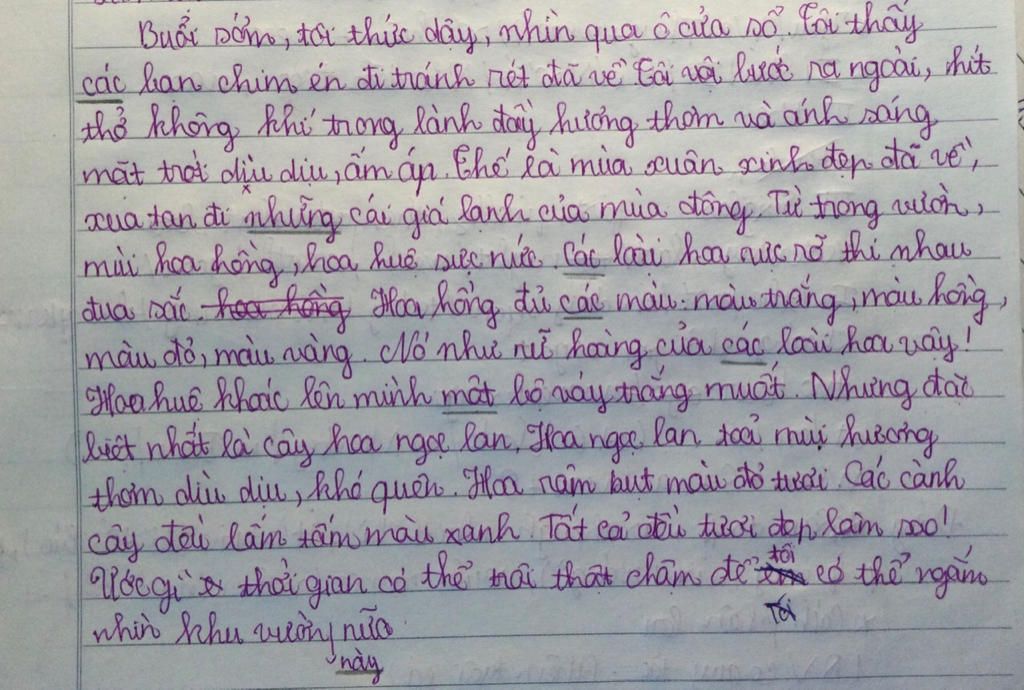 Buổi sớm, tôi thức dậy, nhìn qua ô cửa sổ. Tôi thấy
các han chim én đi tránh rét đã về. Tôi vội bước ra ngoài, hít
thở không khí trong lành đầy hương thơm và ánh sáng
mặt trời dịu dịu, ấm áp. Thế là mùa xuân xinh đẹp đã về,
xua tan đi những cái giá lạnh của mùa đông. Từ trong vườn,
mùi hoa hồng, hoa huệ sực nức. Các loài hoa rực rỡ thi nhau
đua sắc. hoa hồng Hoa hồng đủ các màu: màu trắng, màu hồng,
màu đỏ, màu vàng. Nó như nữ hoàng của các loài hoa vậy!
Hoa huệ khoác lên mình một bộ váy trắng muốt. Nhưng đặc
biệt nhất là cây hoa ngọc lan. Hoa ngọc lan toả mùi hương
thơm dịu dịu, khó quên. Hoa râm bụt màu đỏ tươi. Các cành
cây đều lấm tấm màu xanh. Tất cả đều tươi đẹp làm sao!
Ước gì thời gian có thể trôi thật chậm để tôi có thể ngắm
Tôi
nhìn khu vườn nữa
này